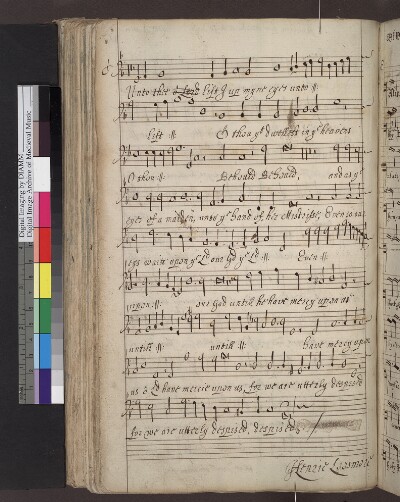 Digital Imaging by DIAMM
Digital Image Archive of Medieval Music
Unto thee o Lord Lift I up myne eyes unto :||:
Lift :||: O thou yt dwellest in ye heavens
O thou :||: Behould, Behould, and as ye
eyes of a maiden, unto ye hand of her Mistrisse, Even so our
eyes waite upon ye Ld our God ye Ld :||: Even :||:
upon :||: our God untill he have mercy upon us
untill :||: untill :||: have mercy upon
us o Ld have mercie upon us, for we are utterly despised
for we are utterly despised, despised.
Henrie Loosmore